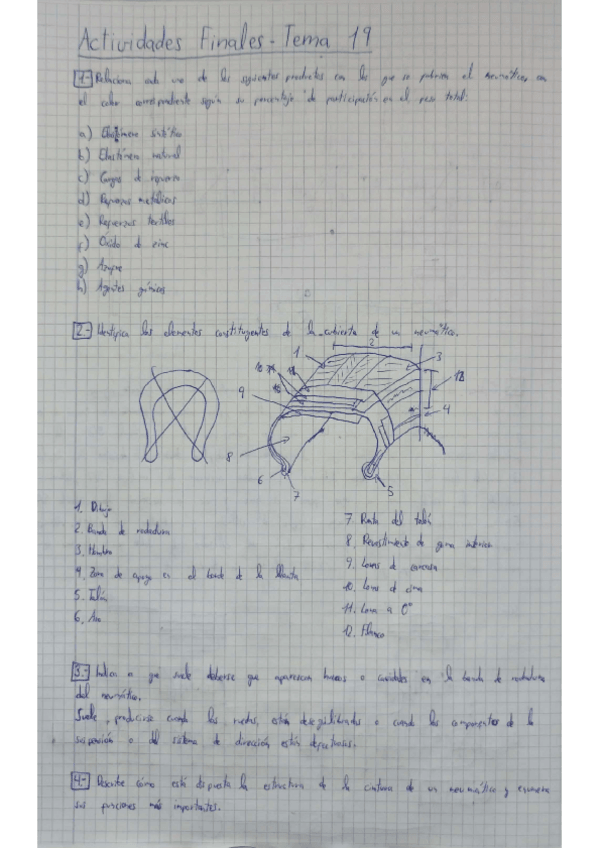 Actividades Finales - Tema 19
1.- Relaciona cada uno de los siguientes productos con los que se fabrican el neumático, con
el color correspondiente según su porcentaje de participación en el peso total:
a) Elastómero sintético
b) Elastómero natural
c) Cargas de refuerzo
d) Refuerzos metálicos
e) Refuerzos textiles
f) Óxido de zinc
g) Azufre
h) Agentes químicos
2.- Identifica los elementos constituyentes de la cubierta de un neumático.
1
2
3
12
9
4
8
6
7
5
1. Dibujo
2. Banda de rodadura
3. Hombro
4. Zona de apoyo en el borde de la llanta
5. Talón
6. Aro
7. Punta del talón
8. Revestimiento de goma interior
9. Lonas de carcasa
10. Lonas de cima
11. Lona a 0°
12. Flanco
3.- Indica a qué suele deberse que aparezcan huecos o cavidades en la banda de rodadura
del neumático.
Suele producirse cuando las ruedas están desequilibradas o cuando los componentes de la
suspensión o del sistema de dirección están defectuosos.
4.- Describe cómo está dispuesta la estructura de la cintura de un neumático y enumera
sus funciones más importantes.